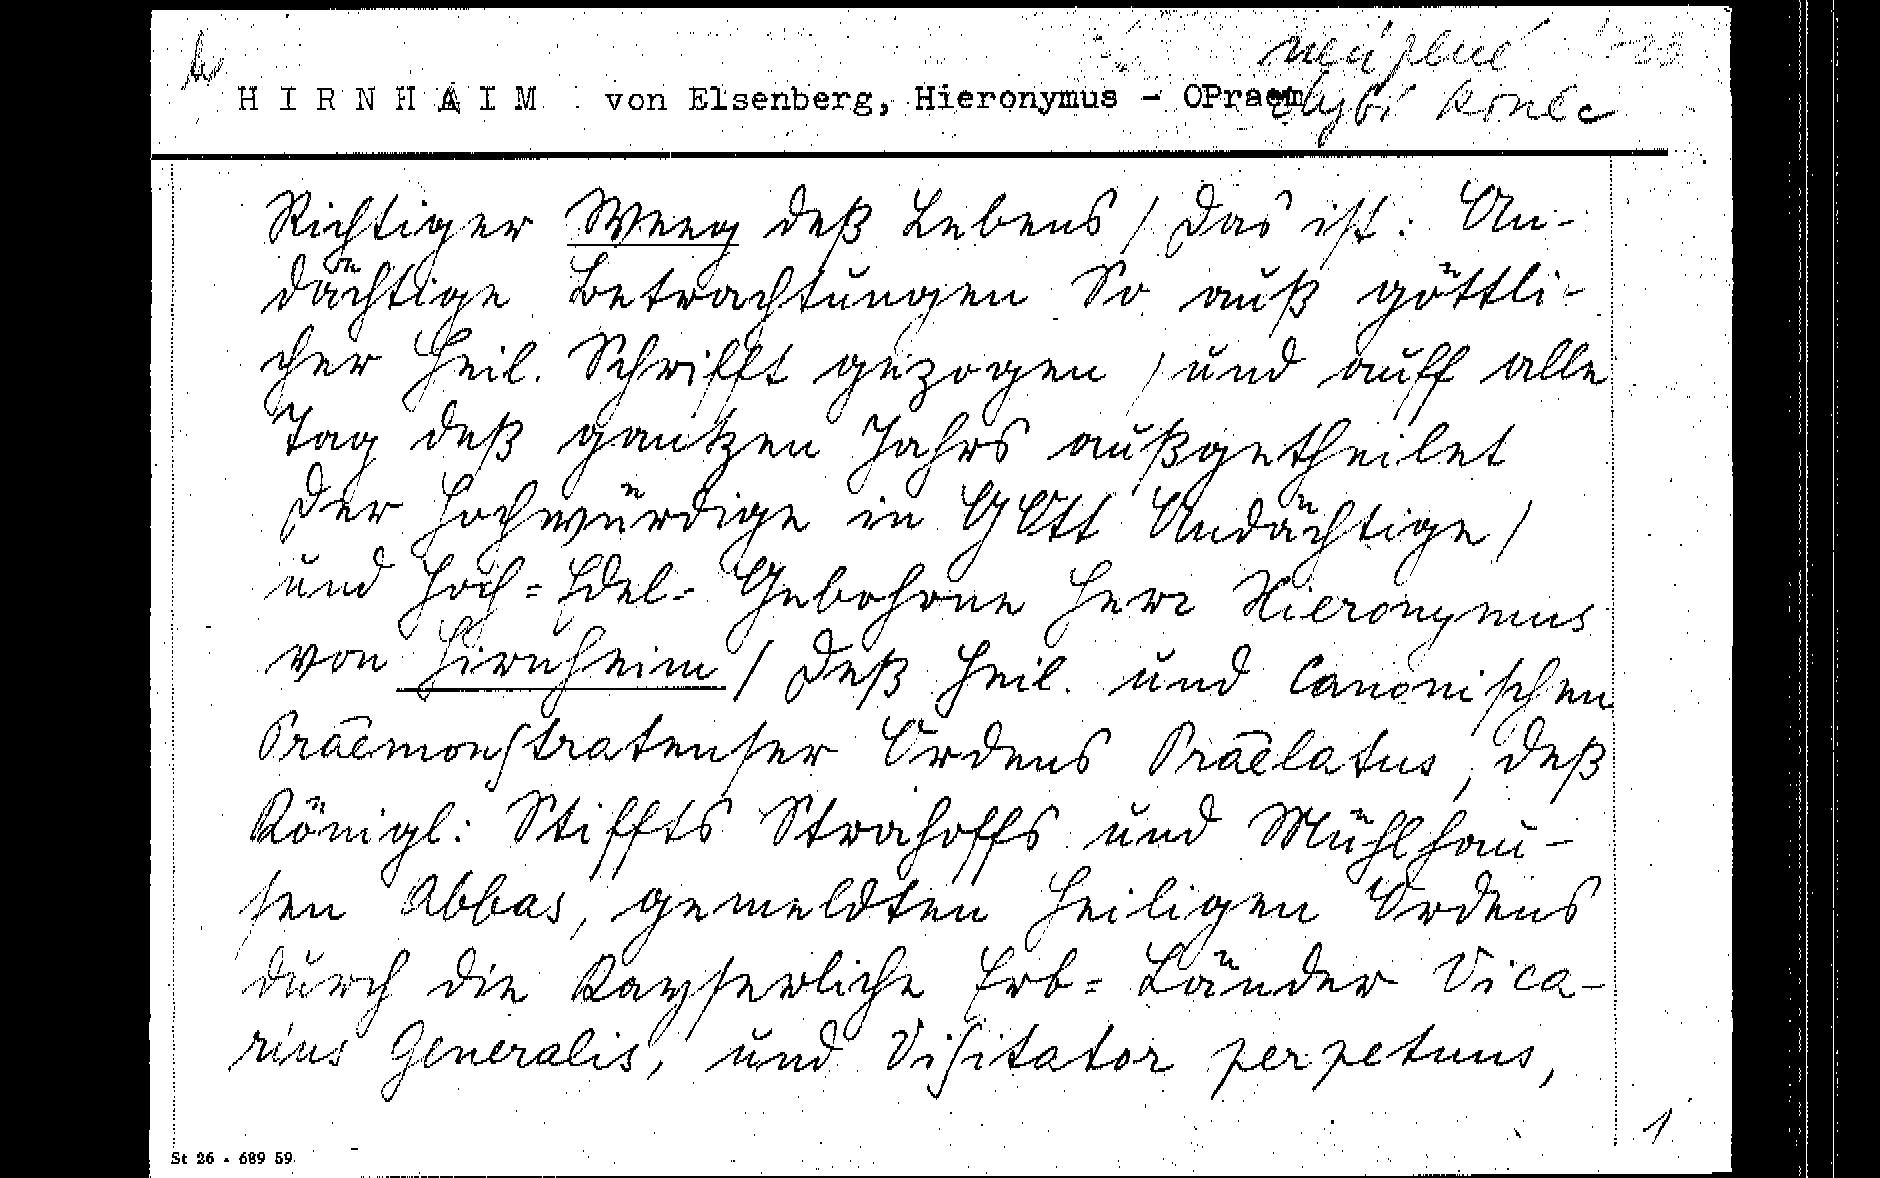 neúplné
HIRNHAIM von Elsenberg, Hieronymus - OPraem
chybí konec
Richtiger Weeg deß Lebens / Das ist: An-
dächtige Betrachtungen So auß göttli-
cher Heil. Schrifft gezogen / und auff alle
Tag deß gantzen Jahrs außgetheilet
Der Hochwürdige in GOtt Andächtige /
und Hoch=Edel- Gebohrne Herr Hieronymus
von Hirnheim / Deß Heil. und Canonischen
Praemonstratenser Ordens Praelatus, deß
Königl: Stiffts Strahoffs und Mühlhau-
sen Abbas, gemeldten Heiligen Ordens
durch die Kayserliche Erb= Länder Vica-
rius Generalis, und Visitator perpetuus,
1
St 26 - 689 59